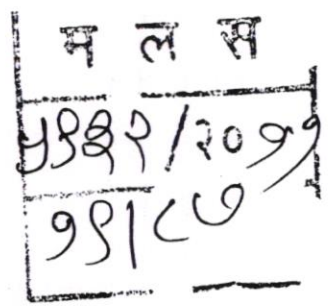 म ल स
५९३२/२०११
१९/८७